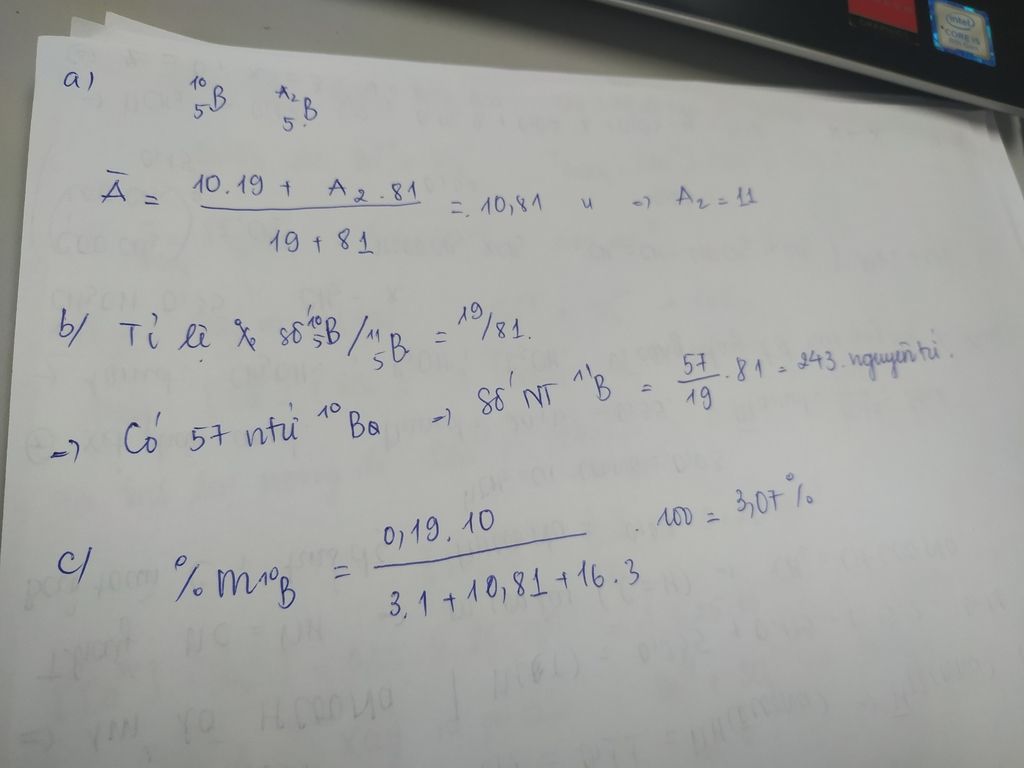 a) ¹⁰₅B ᴬ²₅B
Ā = (10.19 + A₂.81) / (19 + 81) = 10,81 u => A₂ = 11
b/ Tỉ lệ % số ¹⁰₅B / ¹¹₅B = 19/81.
=> Có 57 ntử ¹⁰B => Số NT ¹¹B = 57/19 . 81 = 243. nguyên tử.
c/ % m ¹⁰B = (0,19.10) / (3.1 + 10,81 + 16.3) . 100 = 3,07%
intel
CORE i5